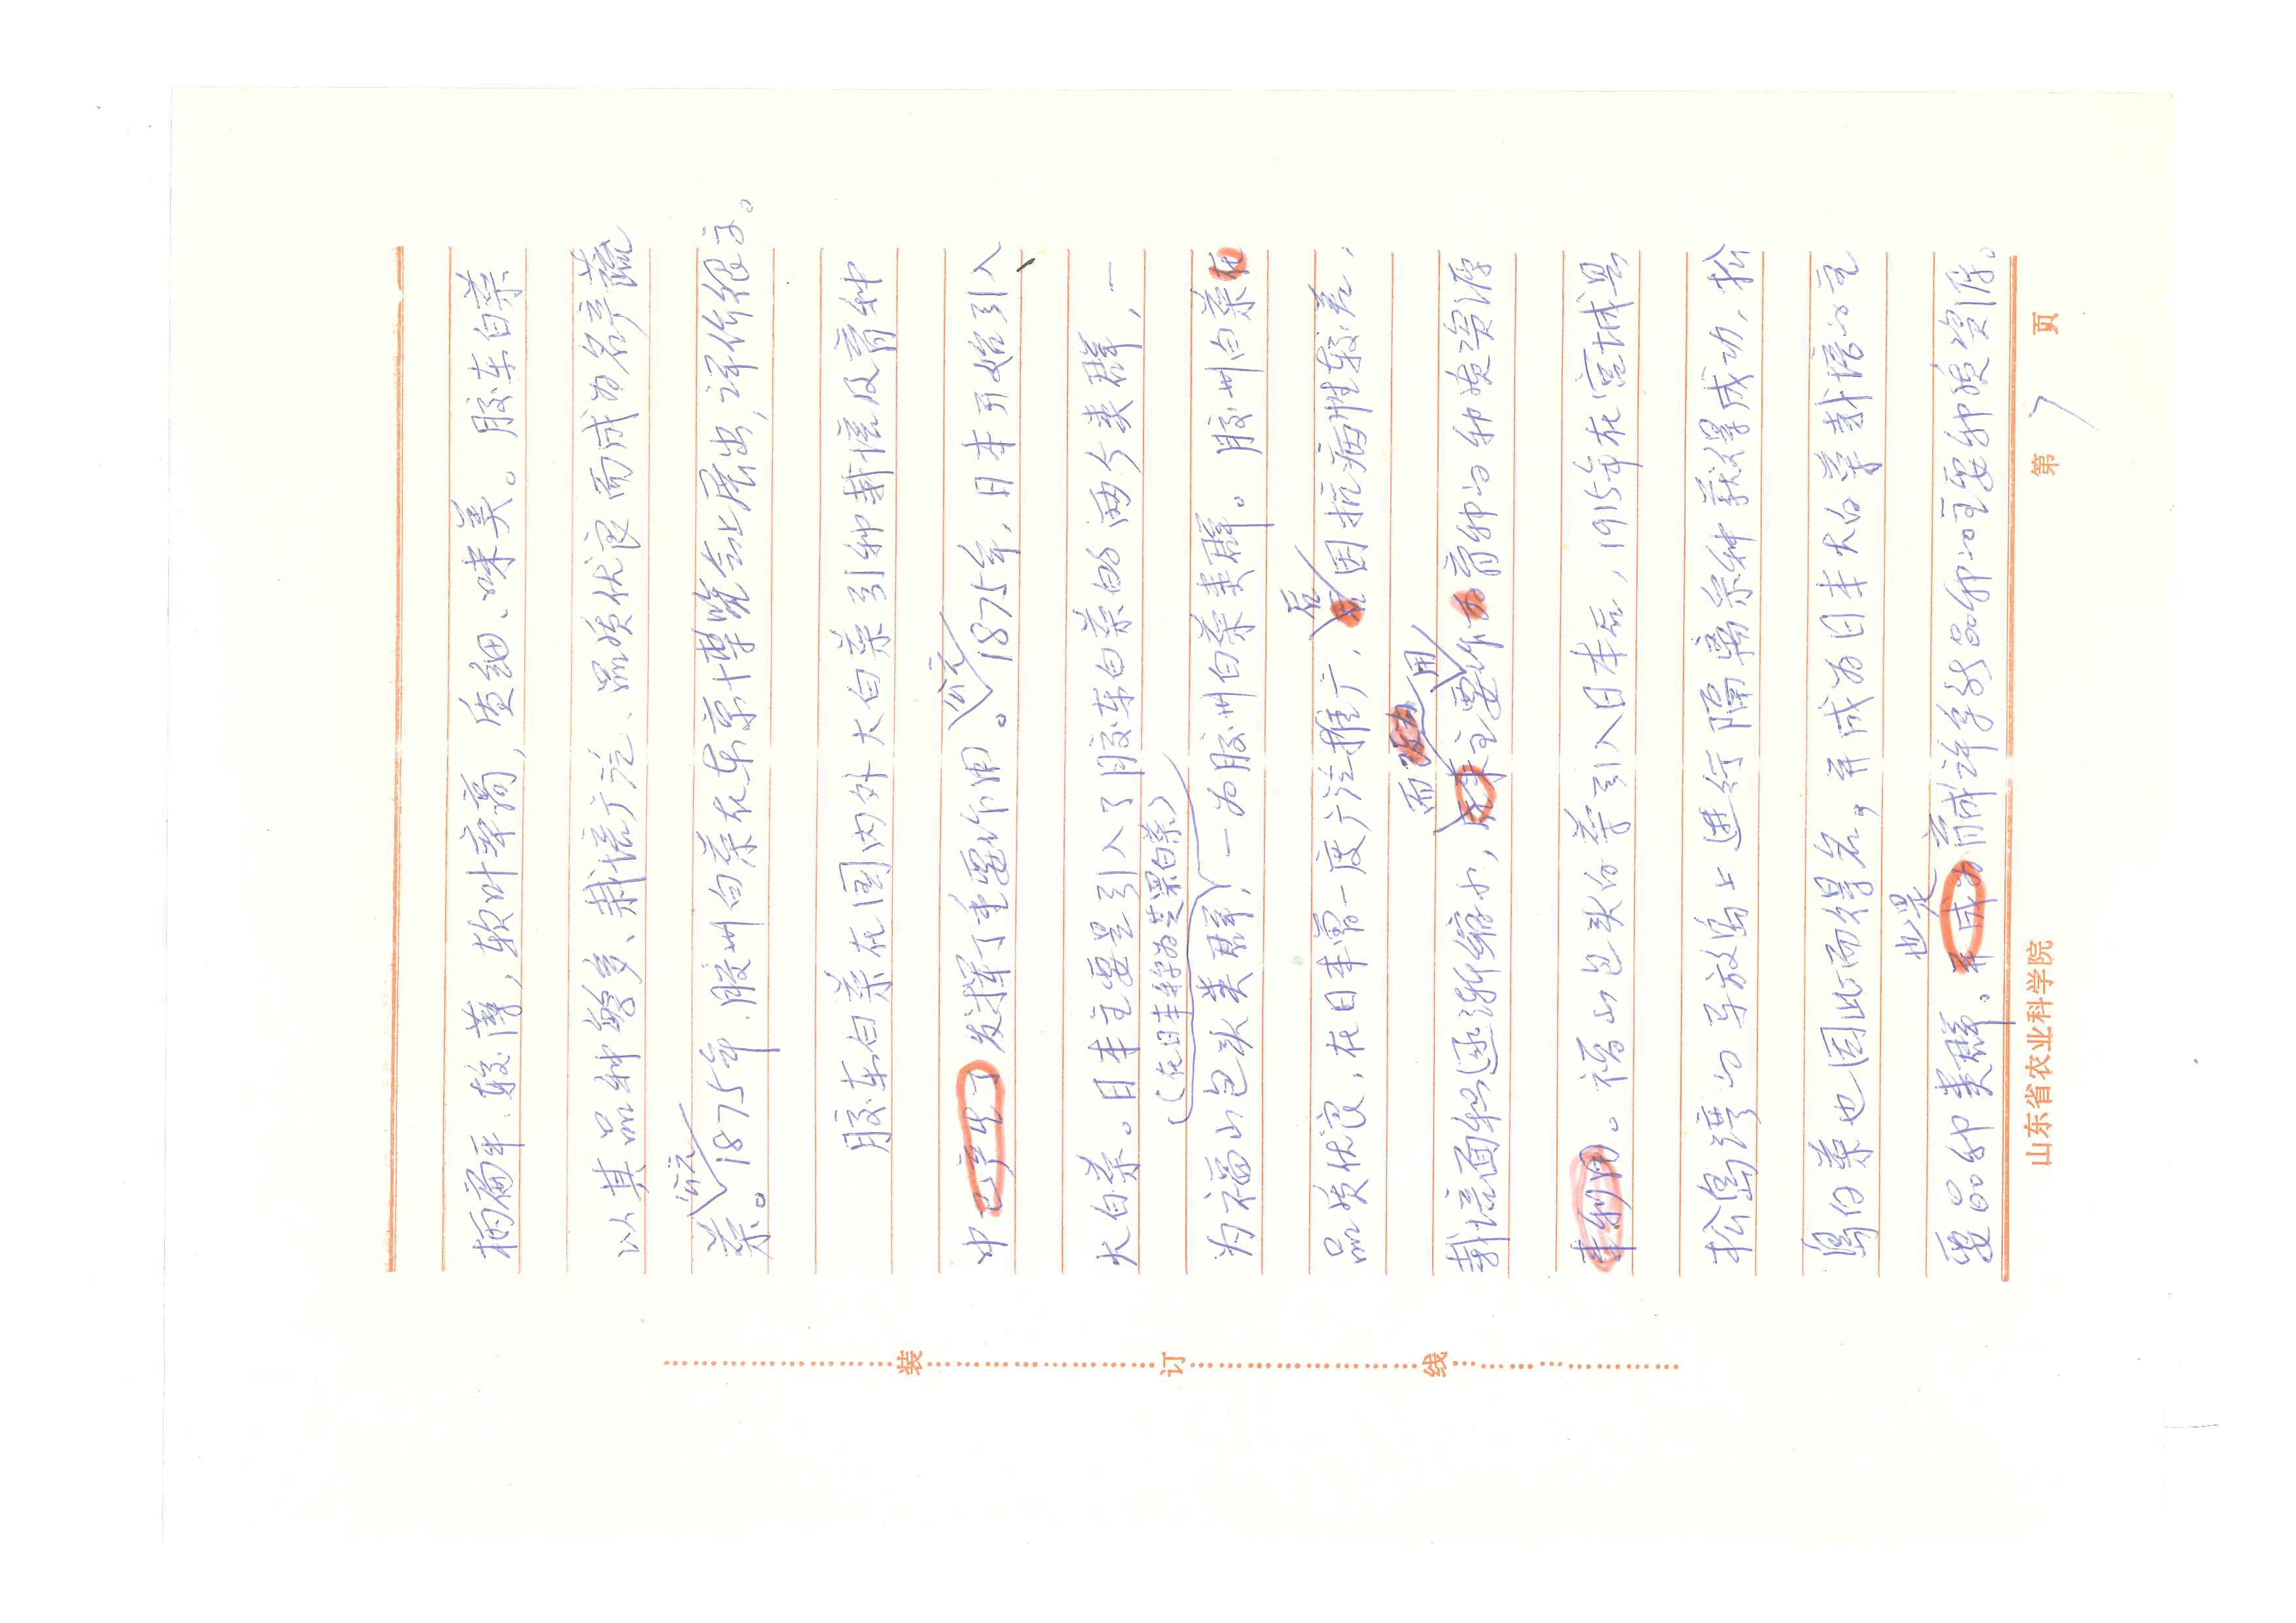 柄扁平、较薄，软叶率高，质细、味美。胶东白菜
以其品种繁多、栽培广泛、品质优良而成为名产蔬
菜。公元1875年，胶州白菜在东京博览会上展出，评价很高。
胶东白菜在国内外大白菜引种栽培及育种
中已产生了发挥了重要作用。公元1875年，日本开始引入
大白菜。日本主要是引入了胶东白菜的两个类群，一
（在日本称为芝罘白菜）
为福山包头类群，一为胶州白菜类群。胶州白菜在
品质优良，在日本曾一度广泛推广，后因抗病性较差，
栽培面积逐渐缩小，而主要作用为育种的种质资源
来利用。福山包头白菜引入日本后，1915年在宫城县
松岛湾的马放岛上进行隔离采种获得成功，松
岛白菜也因此而得名，并成为日本大白菜栽培的主
也是
要品种类群，并成为育成许多新品种的主要种质资源。
山东省农业科学院
第 7 页
装 订 线